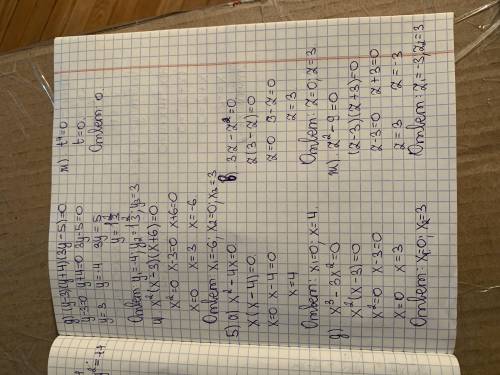 д) (y-3)(y+4)(3y-5)=0
y-3=0 y+4=0 3y-5=0
y=3 y=-4 3y=5
Ответ: y₁=-4; y₃=3
и) x²(x-3)(x+6)=0
x²=0 x-3=0 x+6=0
x=0 x=3 x=-6
Ответ: x₁=-6; x₂=0; x₃=3
5) а) x²-4x=0
x(x-4)=0
x=0 x-4=0
x=4
Ответ: x₁=0; x=4.
д) x³-3x²=0
x²(x-3)=0
x²=0 x-3=0
x=0 x=3
Ответ: x₁=0; x₂=3
t⁴=0
t=0
Ответ: 0
в) 3z-z²=0
z(3-z)=0
z=0 3-z=0
z=3
Ответ: z=0; z=3
z²-9=0
(z-3)(z+3)=0
z-3=0 z+3=0
z=3 z=-3
Ответ: z₁=-3; z₂=3